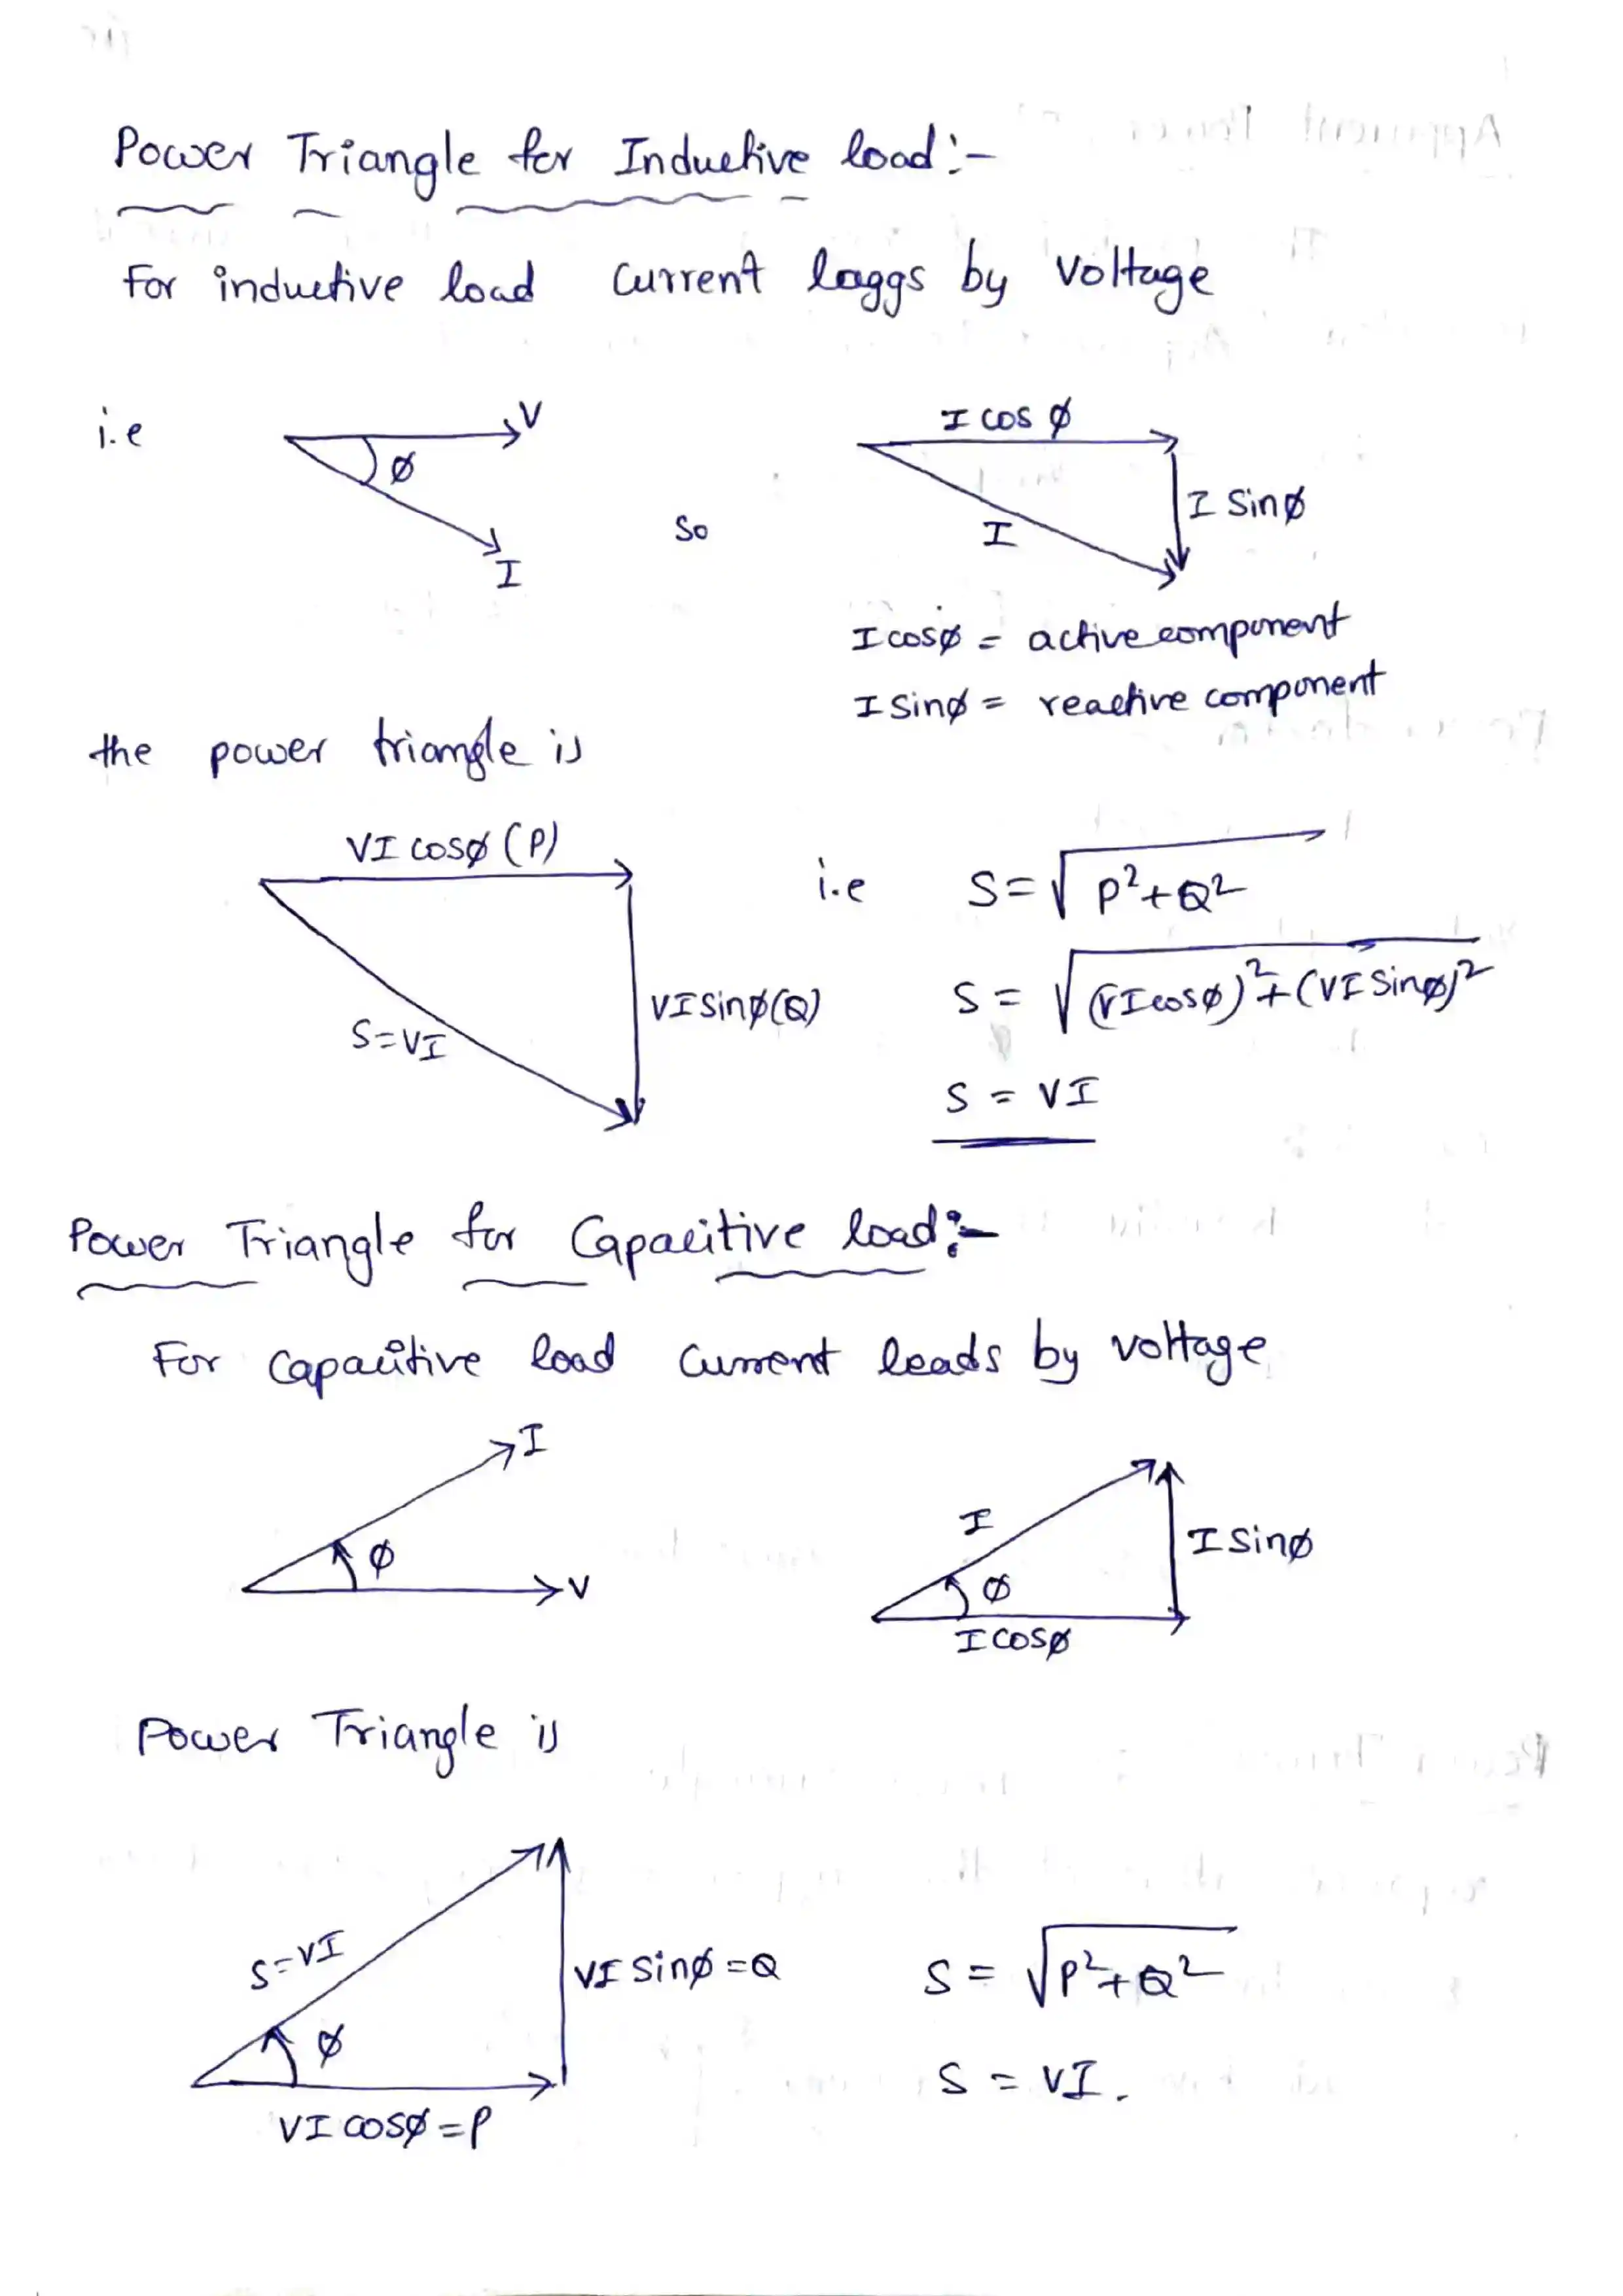 Power Triangle for Inductive load:-
For inductive load current laggs by voltage
i.e
V
ϕ
I
so
I cos ϕ
I sinϕ
I
I cosϕ = active component
I sinϕ = reactive component
the power triangle is
VI cosϕ (P)
VI sinϕ(Q)
S=VI
i.e S=√P²+Q²
S = √(VIcosϕ)²+(VI sinϕ)²
S = VI
Power Triangle for Capacitive load:-
For capacitive load current leads by voltage
I
ϕ
V
I
I sinϕ
ϕ
I cosϕ
Power Triangle is
S=VI
VI sinϕ=Q
ϕ
VI cosϕ=P
S = √P²+Q²
S = VI.